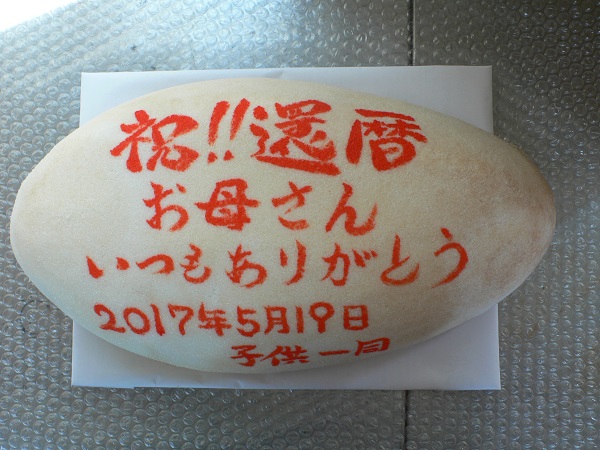 祝!!還暦
お母さん
いつもありがとう
2017年5月19日
子供一同